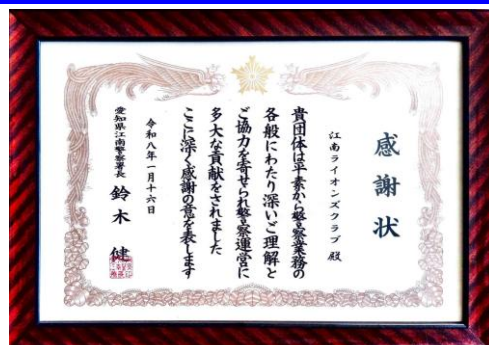 感謝状
江南ライオンズクラブ 殿
貴団体は平素から警察業務の
各般にわたり深いご理解と
ご協力を寄せられ警察運営に
多大な貢献をされました
ここに深く感謝の意を表します
令和八年一月十六日
愛知県江南警察署長 鈴木 健